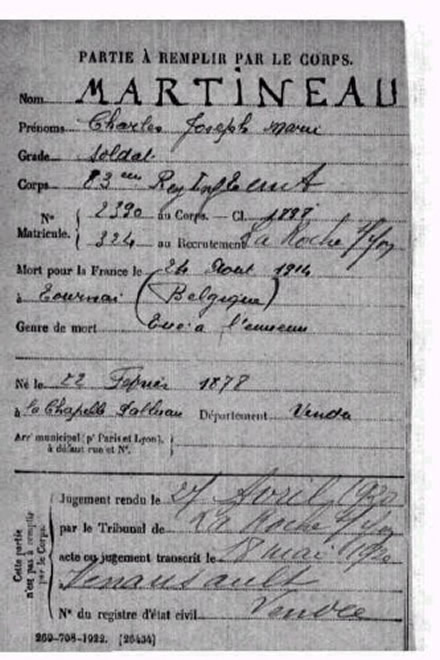 PARTIE À REMPLIR PAR LE CORPS.
Nom MARTINEAU
Prénoms Charles Joseph Marie
Grade Soldat
Corps 83 eme Rey Inf
N° 2390 au Corps. — Cl. 1898
Matricule. 324 au Recrutement La Roche s/yon
Mort pour la France le 24 Aout 1914
à Tournai (Belgique)
Genre de mort Tué à l'ennemi
Né le 22 Février 1878
à la Chapelle Palluau Département Vendée
Arr' municipal (p' Paris et Lyon), à défaut rue et N°.
Cette partie n'est pas à remplir par le Corps.
Jugement rendu le 27 Avril 1920
par le Tribunal de La Roche s/yon
acte ou jugement transcrit le 18 mai 1920
Venansault
N° du registre d'état civil Vendée
269-708-1922. [26434]